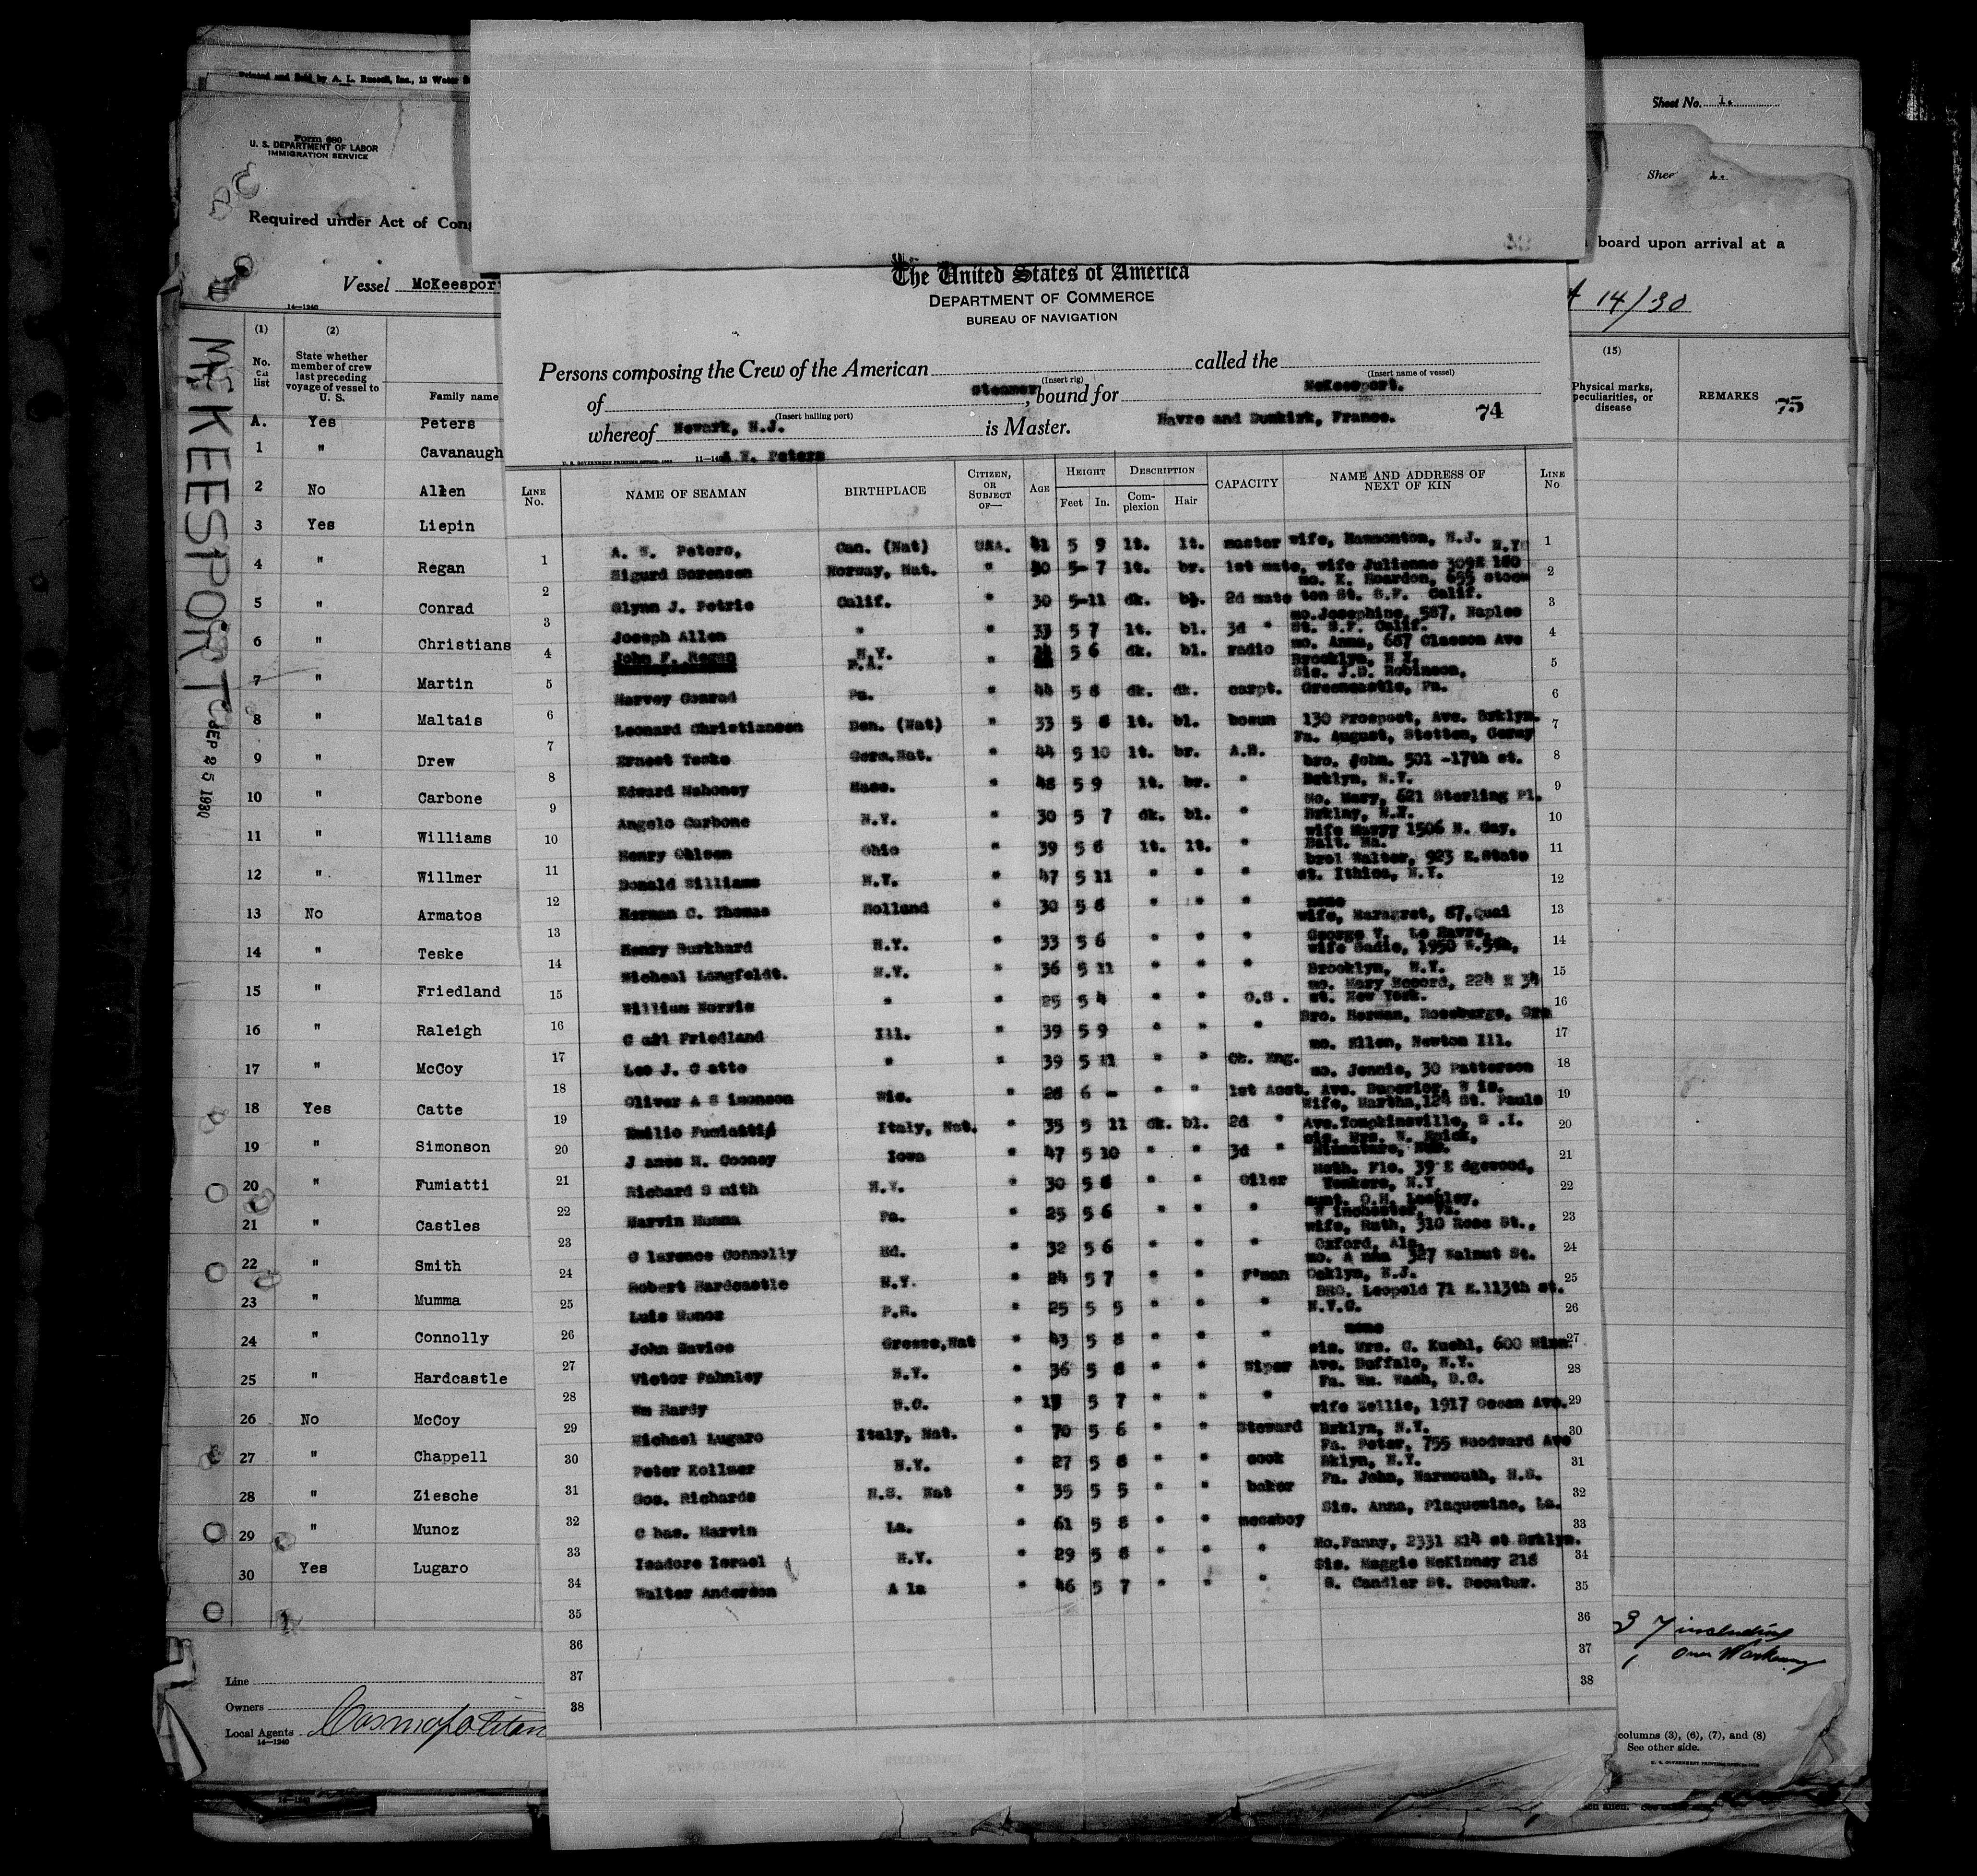 Printed and Sold by A. L. Russell, Inc., 13 Water
Form 680
U. S. DEPARTMENT OF LABOR
IMMIGRATION SERVICE
Required under Act of Cong
Vessel McKeesport
14—1240
(1) (2)
No. on list
State whether member of crew last preceding voyage of vessel to U. S.
Family name
A. Yes Peters
1 " Cavanaugh
2 No Allen
3 Yes Liepin
4 " Regan
5 " Conrad
6 " Christians
7 " Martin
8 " Maltais
9 " Drew
10 " Carbone
11 " Williams
12 " Willmer
13 No Armatos
14 " Teske
15 " Friedland
16 " Raleigh
17 " McCoy
18 Yes Catte
19 " Simonson
20 " Fumiatti
21 " Castles
22 " Smith
23 " Mumma
24 " Connolly
25 " Hardcastle
26 No McCoy
27 " Chappell
28 " Ziesche
29 " Munoz
30 Yes Lugaro
Line
Owners
Local Agents Cosmopolitan
14—1240
McKEESPORT
SEP 25 1930
The United States of America
DEPARTMENT OF COMMERCE
BUREAU OF NAVIGATION
Persons composing the Crew of the American steamer called the McKeesport.
(Insert rig) (Insert name of vessel)
of Newark, N.J., bound for Havre and Dunkirk, France. 74
(Insert hailing port)
whereof A.W. Peters is Master.
U. S. GOVERNMENT PRINTING OFFICE
LINE No. NAME OF SEAMAN BIRTHPLACE CITIZEN, OR SUBJECT OF— AGE HEIGHT Feet In. DESCRIPTION Complexion Hair CAPACITY NAME AND ADDRESS OF NEXT OF KIN LINE No
1 A. W. Peters, Can. (Nat) USA. 41 5 9 lt. lt. master wife, Hammonton, N.J. 1
2 Sigurd Sorensen Norway, Nat. " 30 5- 7 lt. br. 1st mate, wife Julienne 309E 180 N.YC 2
3 Glynn J. Petrie Calif. " 30 5-11 dk. 2d mate mo. K. Reardon, 655 stock ton St. S.F. Calif. 3
4 Joseph Allen " " 33 5 7 lt. bl. 3d " mo.Josephine, 587, Naples St. S.F. Calif. 4
John F. Regan N.Y. " 5 6 dk. bl. radio mo. Anna, 687 Classon Ave Brooklyn, N Y. 5
5 Harvey Conrad Pa. " 44 5 8 dk. dk. carpt. Sis. J.D. Robinson, Greencastle, Pa. 6
6 Leonard Christiansen Den. (Nat) " 33 5 8 lt. bl. bosun 130 Prospect, Ave. Brklyn. 7
7 Ernest Teske Germ,Nat. " 44 5 10 lt. br. A.B. Fa. August, Stetten, Germy 8
8 Edward Mahoney Mass. " 48 5 9 lt. br. " bro. John. 501 -17th st. Brklyn, N.Y. 9
9 Angelo Carbone N.Y. " 30 5 7 dk. bl. " Mo. Mary, 621 Sterling Pl. Brklny, N.Y. 10
10 Henry Ohlsen Ohio " 39 5 8 lt. lt. " wife Marry 1506 N. Gay, Balt. Ma. 11
11 Donald Williams N.Y. " 47 5 11 " " " brol Walter, 923 E.State st. Ithica, N.Y. 12
12 Herman C. Thomas Holland " 30 5 8 " " " none 13
13 Henry Burkhard N.Y. " 33 5 6 " " " wife, Maragret, 87,Quai George V. Le Havre, 14
14 Micheal Langfeldt. N.Y. " 36 5 11 " " " wife Sadie, 1950 E.5th, Brooklyn, N.Y. 15
15 William Norris " " 25 5 4 " " O.S. mo. Mary Mccord, 224 E 34 st. New York. 16
16 C arl Friedland Ill. " 39 5 9 " " " Bro. Herman, Roseburge, Ore 17
17 Leo J. C atte " " 39 5 11 " " Ch. Eng. mo. Ellen, Newton Ill. 18
18 Oliver A S imonson Wis. " 28 6 - " " 1st Asst. mo. Jennie, 30 Patterson Ave. Superior, W is. 19
19 Emilio Fumiatti Italy, Nat. " 35 5 11 dk. bl. 2d " Wife, Martha,124 St. Pauls Ave.Tompkinsville, S .I. 20
20 J ames H. Cooney Iowa " 47 5 10 " " 3d " sis. Mrs. W. 21
21 Richard S mith N.Y. " 30 5 8 " " Oiler Moth. Flo. 39 E dgewood, Yonkers, N.Y 22
22 Marvin Mumma Pa. " 25 5 6 " " " aunt. O.H. W inchester, Va. 23
23 C larence Connolly Md. " 32 5 6 " " " wife, Ruth, 310 Ross St., Oxford, Ala. 24
24 Robert Hardcastle N.Y. " 24 5 7 " " F'man mo. A nna 327 Walnut St. Oaklyn, N.J. 25
25 Luis Munoz P.R. " 25 5 5 " " " BRO. Leopold 71 E.113th st. N.Y.C. 26
26 John Savios Greece,Nat " 43 5 8 " " " none 27
27 Victor Fahnley N.Y. " 36 5 8 " " Wiper sis. Mrs. G. Kuehl, 600 Minn. Ave. Buffalo, N.Y. 28
28 Wm Hardy N.C. " 5 7 " " " Fa. Wm. Wash, D.C. 29
29 Michael Lugaro Italy, Nat. " 70 5 6 " " Steward wife Nellie, 1917 Ocean Ave. Brklyn, N.Y. 30
30 Peter Kollmer N.Y. " 27 5 8 " " cook Fa. Peter, 755 Woodward Ave Bklyn, N.Y. 31
31 Geo. Richards N.S. Nat " 35 5 5 " " baker Fa. John, Yarmouth, N.S. 32
32 C has. Marvin La. " 61 5 8 " " messboy Sis. Anna, Plaquemine, La. 33
33 Isadore Israel N.Y. " 29 5 8 " " " Mo.Fanny, 2331 E14 st Brklyn. 34
34 Walter Anderson A la " 46 5 7 " " " Sis. Maggie McKinney 218 S. Candler St. Decatur. 35
35 36
36 37
37 38
38
Sheet No. 1.
Shee 1.
board upon arrival at a
14/30
(15)
Physical marks, peculiarities, or disease
REMARKS 75
37 including
one Workaway
columns (3), (6), (7), and (8)
See other side.